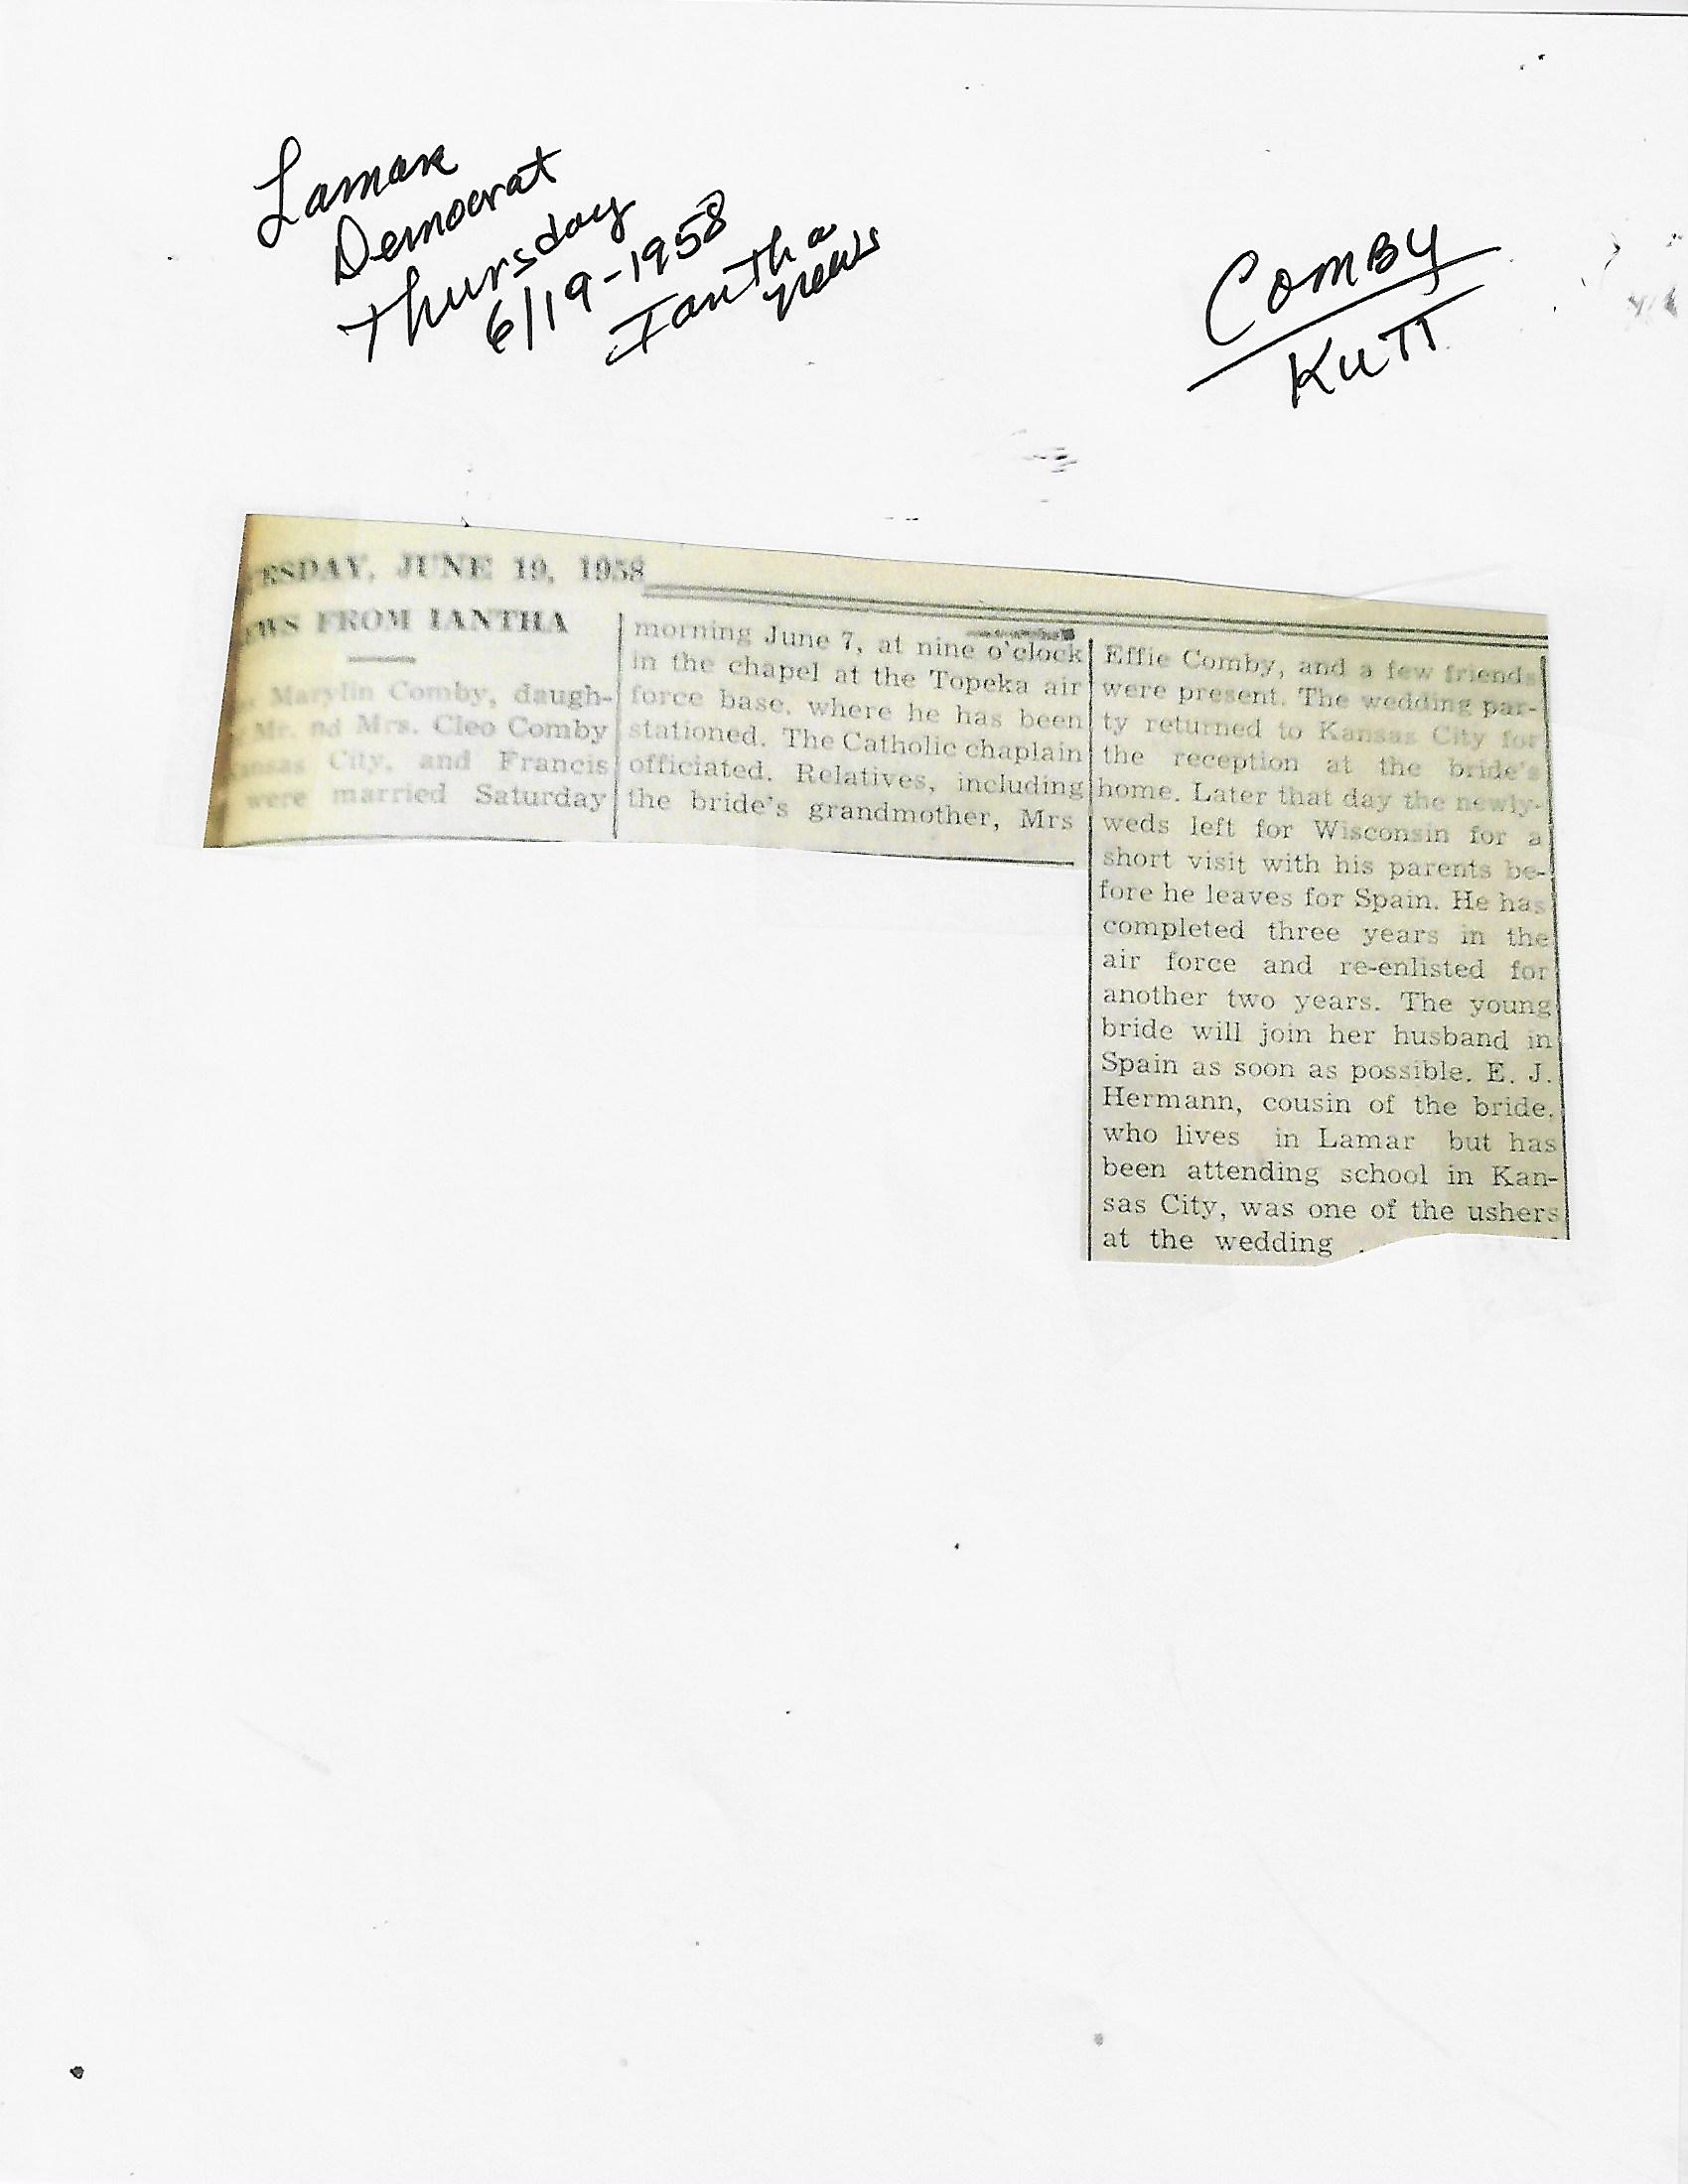 Lamar
Democrat
Thursday
6/19-1958
Iantha
news
Comby
Kutt
ESDAY, JUNE 19, 1958
WS FROM IANTHA
Marylin Comby, daugh-
Mr. nd Mrs. Cleo Comby
ansas City, and Francis
were married Saturday
morning June 7, at nine o'clock
in the chapel at the Topeka air
force base, where he has been
stationed. The Catholic chaplain
officiated. Relatives, including
the bride's grandmother, Mrs
Effie Comby, and a few friends
were present. The wedding par-
ty returned to Kansas City for
the reception at the bride's
home. Later that day the newly-
weds left for Wisconsin for a
short visit with his parents be-
fore he leaves for Spain. He has
completed three years in the
air force and re-enlisted for
another two years. The young
bride will join her husband in
Spain as soon as possible. E. J.
Hermann, cousin of the bride,
who lives in Lamar but has
been attending school in Kan-
sas City, was one of the ushers
at the wedding .